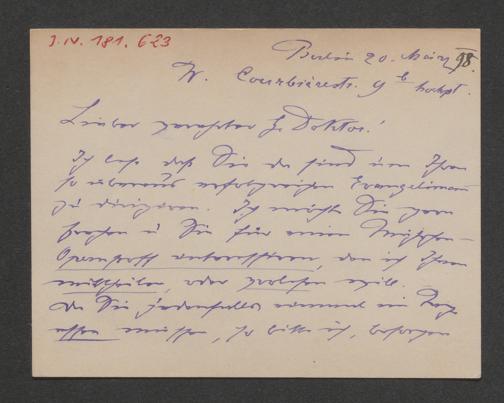 J. N. 181. 623
Berlin 20. März 98.
W. Courbièrestr. 9b hochpt.
Lieber verehrter H. Doktor!
Ich lese daß Sie da sind um Ihren
so überaus erfolgreichen Evangelimann
zu dirigiren. Ich möchte Sie gern
fragen u Sie für einen
Opernstoff interessiren, den ich Ihnen
mittheilen, oder vorlesen will.
Da Sie jedenfalls einmal im Tag
essen müssen, so bitte ich,